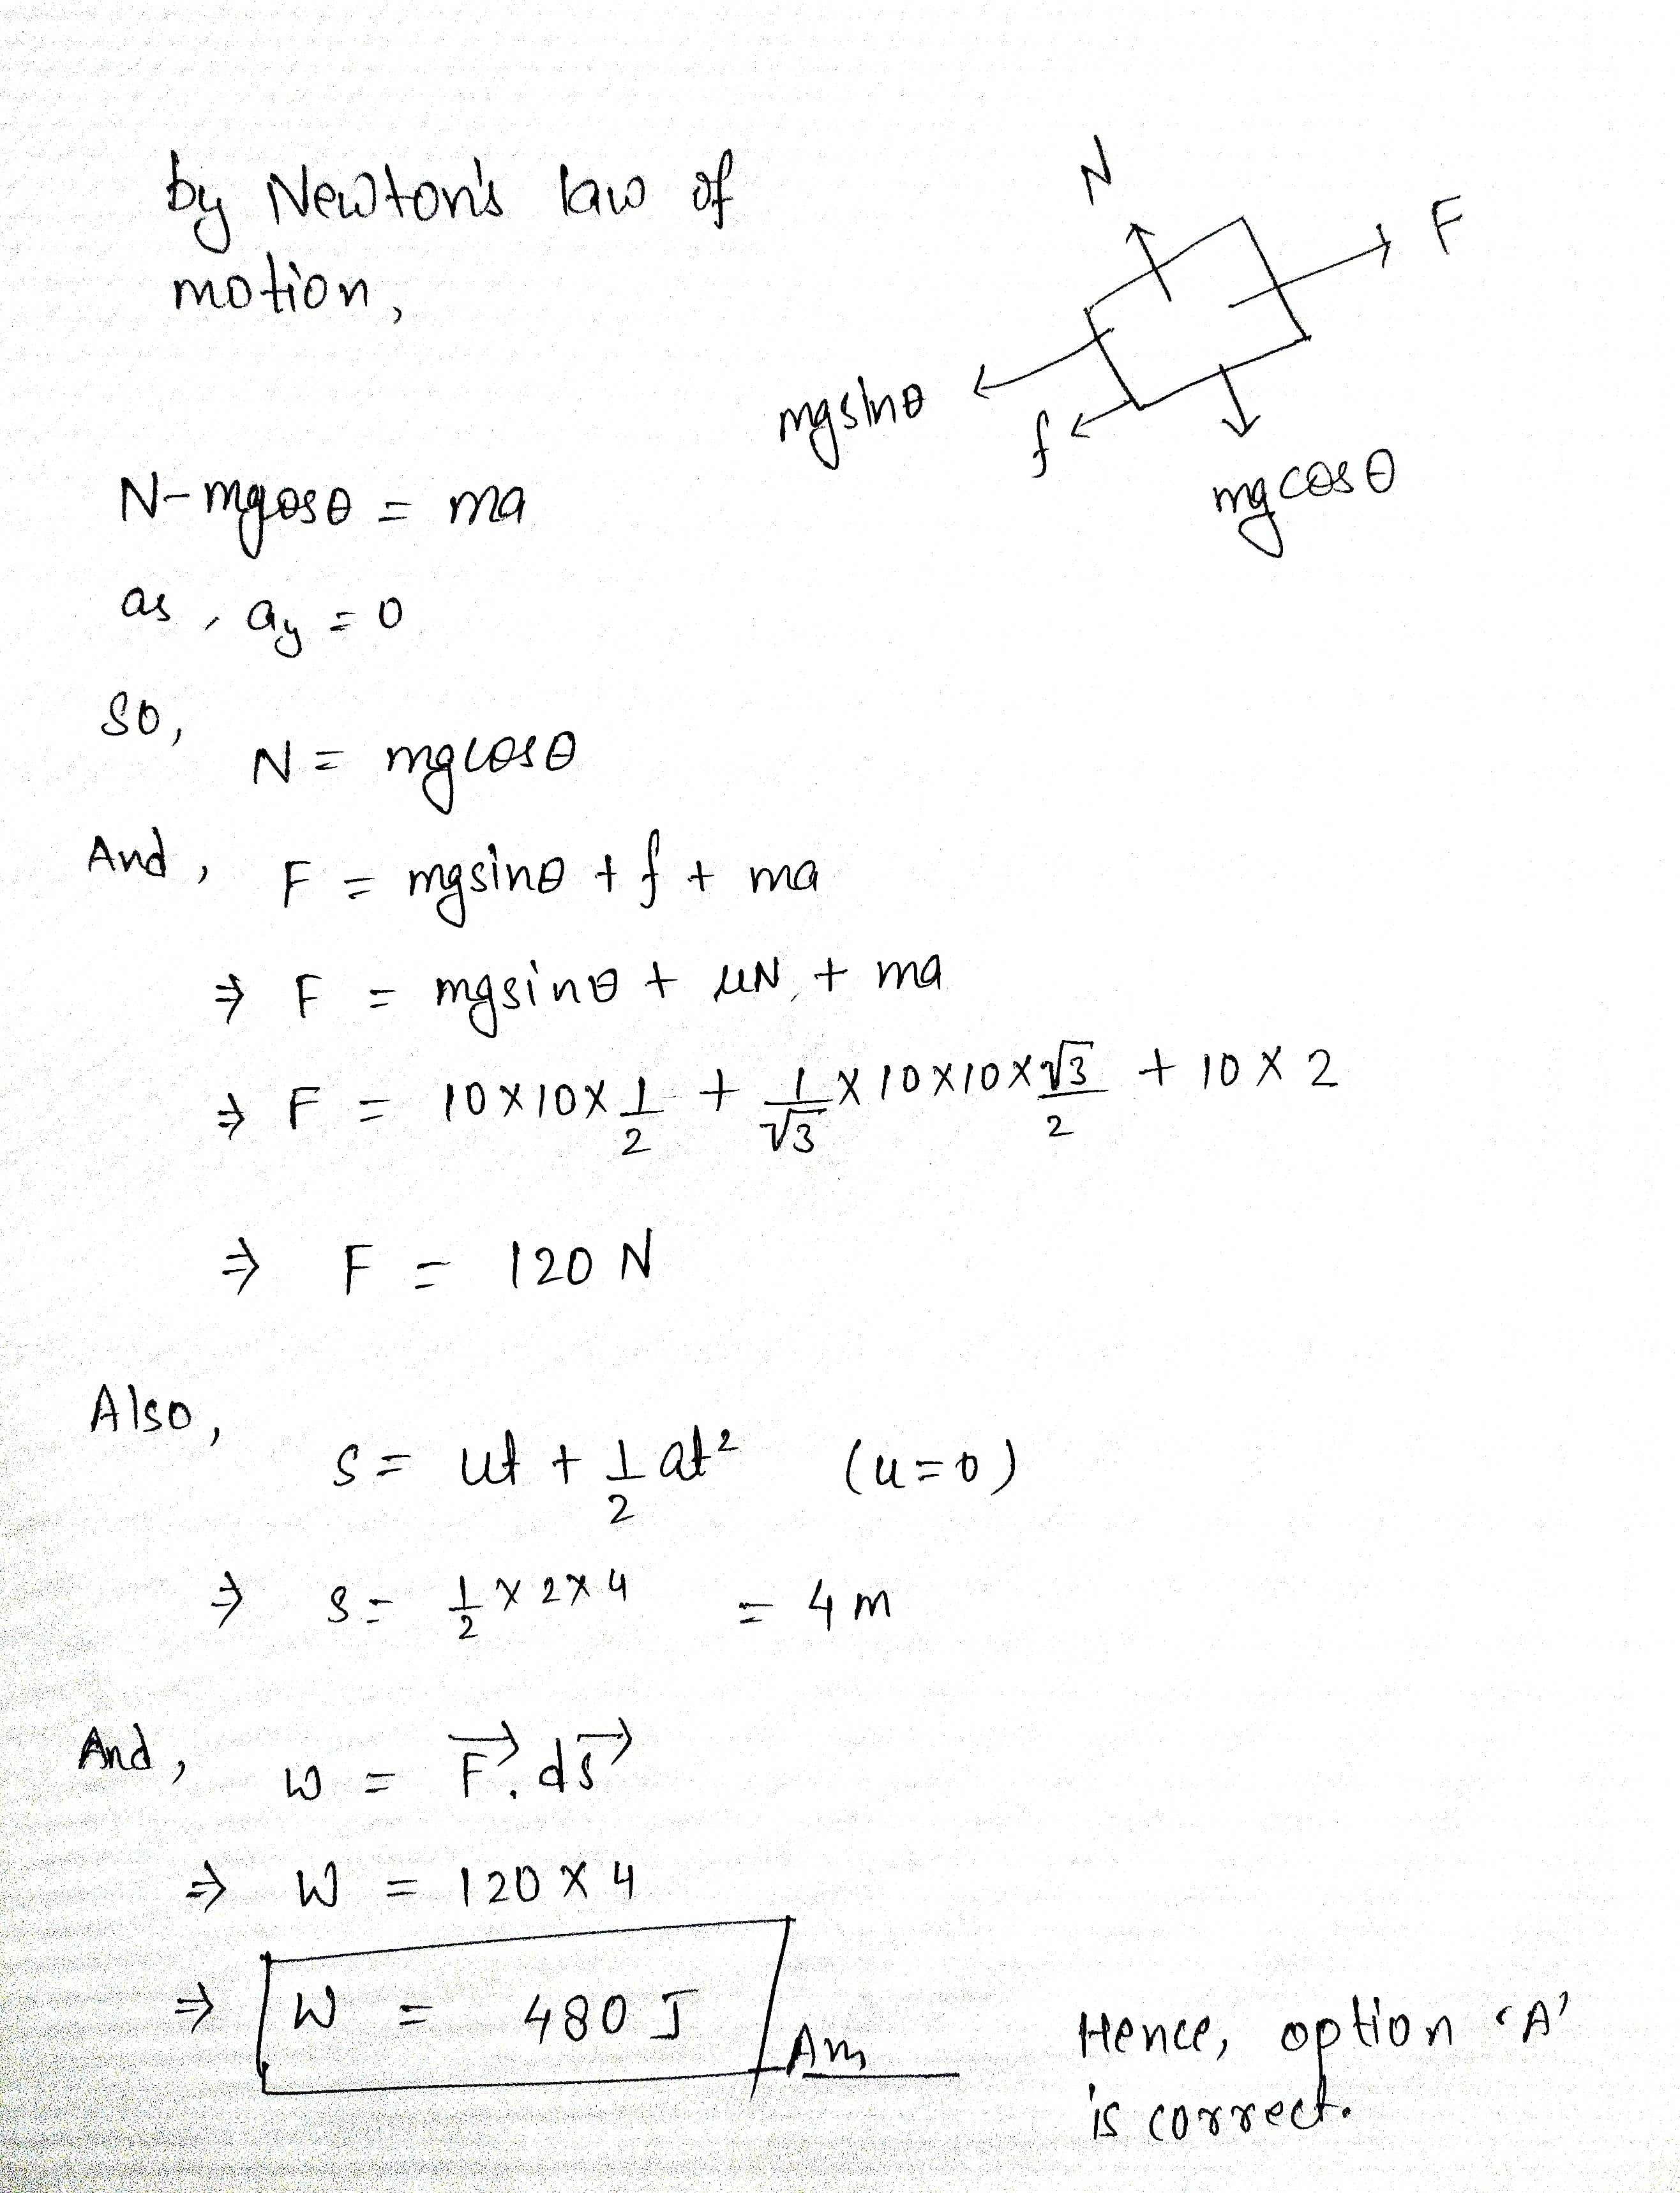 by Newton's law of
motion,
N
F
mgsinθ
f
mgcosθ
N-mgcosθ = ma
as, ay = 0
So,
N = mgcosθ
And, F = mgsinθ + f + ma
⇒ F = mgsinθ + μN + ma
⇒ F = 10×10×1/2 + 1/√3 × 10×10×√3/2 + 10×2
⇒ F = 120 N
Also,
s = ut + 1/2 at² (u=0)
⇒ s = 1/2 × 2×4 = 4 m
And, W = F→.ds→
⇒ W = 120 × 4
⇒ W = 480 J Ans
Hence, option 'A'
is correct.